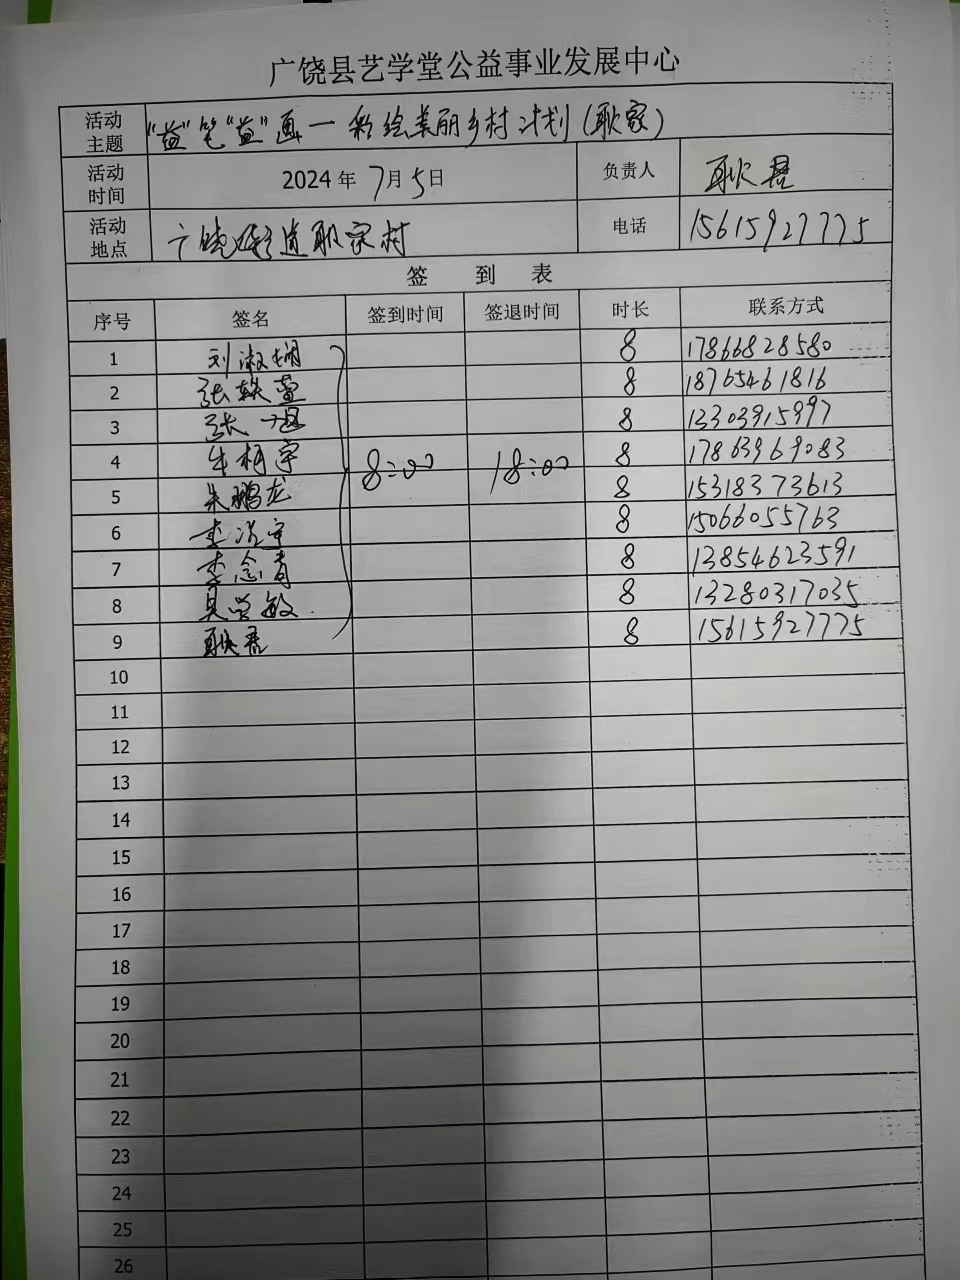 广饶县艺学堂公益事业发展中心
活动主题 "益"笔"益"画一彩绘美丽乡村计划(耿家)
活动时间 2024年7月5日 负责人 耿君
活动地点 广饶街道耿家村 电话 15615927775
签 到 表
序号 签名 签到时间 签退时间 时长 联系方式
1 刘淑娴 8 17866828580
2 张轶萱 8 18765461816
3 张 8 13303915997
4 牛柯宇 8:00 18:00 8 17863969083
5 朱鹏龙 8 15318373613
6 李 宇 8 15066055763
7 李念青 8 13854623591
8 吴学敏 8 13280317035
9 耿君 8 15615927775
10
11
12
13
14
15
16
17
18
19
20
21
22
23
24
25
26